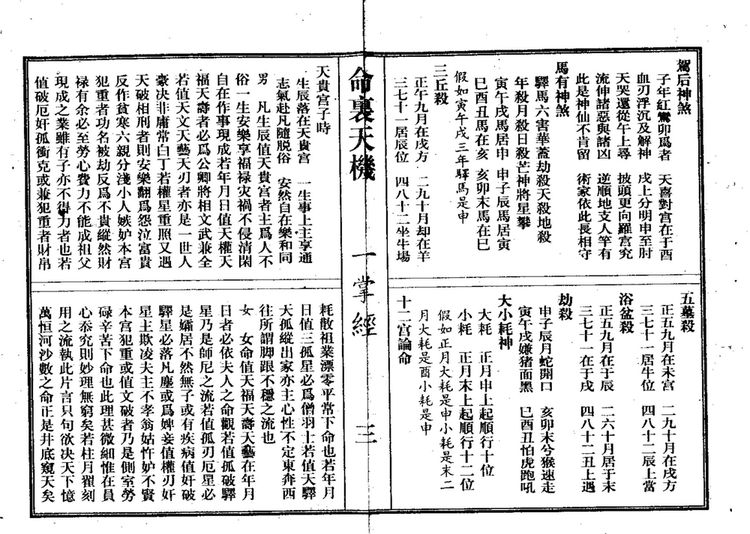 駕后神煞
子年紅鸞卯爲者　天喜對宮在于酉
血刃浮沉及解神　戌上分明申至肘
天哭還從午上尋　披頭更向羅宮究
流伸諸惡與諸凶　逆順地支人竿有
此是神仙不肯留　術家依此長相守
馬有神煞
驛馬六害華蓋劫殺天殺地殺
年殺月殺日殺芒神將星攀
寅午戌馬居申　申子辰馬居寅
巳酉丑馬在亥　亥卯未馬在巳
假如寅午戌三年驛馬是申
三丘殺
正午九月在戌方　二九十月却在羊
三七十一居辰位　四八十二坐牛場
五墓殺
正五九月在未宮　二九十月在戌方
三七十一居牛位　四八十二辰上當
浴盆殺
正五九月在于辰　二六十月居于未
三七十一在于戌　四八十二丑上遇
劫殺
申子辰月蛇開口　亥卯未兮猴速走
寅午戌嫌猪面黑　巳酉丑怕虎跑吼
大小耗神
大耗　正月申上起順行十位
小耗　正月未上起順行十二位
假如正月大耗是申小耗是未二
月大耗是酉小耗是申
十二宮論命
命裏天機　一掌經　三
天貴宮子時
生辰落在天貴宮　一生事上主享通
志氣赳凡隨脱俗　安然自在樂和同
男　凡生辰值天貴宮者主爲人不
俗一生安樂享福祿灾禍不侵清閑
自在作事現成若年月日值天權天
福天壽者必爲公卿將相文武兼全
若值天文天藝天刃者亦是一世人
豪決非庸常白丁若權星重照又遇
天破相刑者則安樂翻爲怨泣富貴
反作貧寒六親分淺小人嫉妒本宮
犯重者功名被劫反爲不貴縱然財
禄有余必至勞心費力不能成祖父
現成之業雖有子亦不得力者也若
值破厄奸孤衝克或兼犯重者財帛
耗散祖業漂零平常下命也若年月
日值三孤星必爲僧羽士若值天驛
天孤縱出家亦主心性不定東奔西
往所謂脚跟不穩之流也
女　女命值天福天壽天藝在年月
日者必依夫人之命觀若值孤破驛
星乃是師尼之流若值孤刃厄星必
是孀居不然無子或有疾病值奸破
驛星必落凡塵或爲婢妾值權刃奸
星主欺凌夫主不孝翁姑忤妒不賢
本宮犯重或值文破者乃是側室勞
碌辛苦下命也此理甚微細惟在員
心泰究則妙理無窮矣若柱月翟刻
用之流執此片言只句欲決天下憶
萬恒河沙數之命正是井底窺天矣